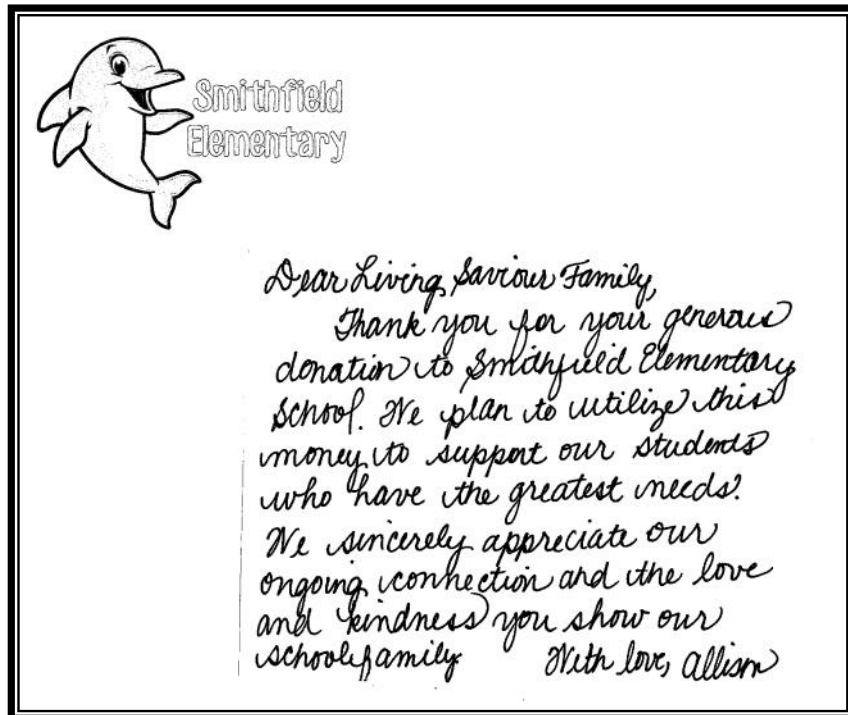 Smithfield
Elementary
Dear Living Saviour Family,
Thank you for your generous
donation to Smithfield Elementary
School. We plan to utilize this
money to support our students
who have the greatest needs.
We sincerely appreciate our
ongoing connection and the love
and kindness you show our
school family. With love, Allison